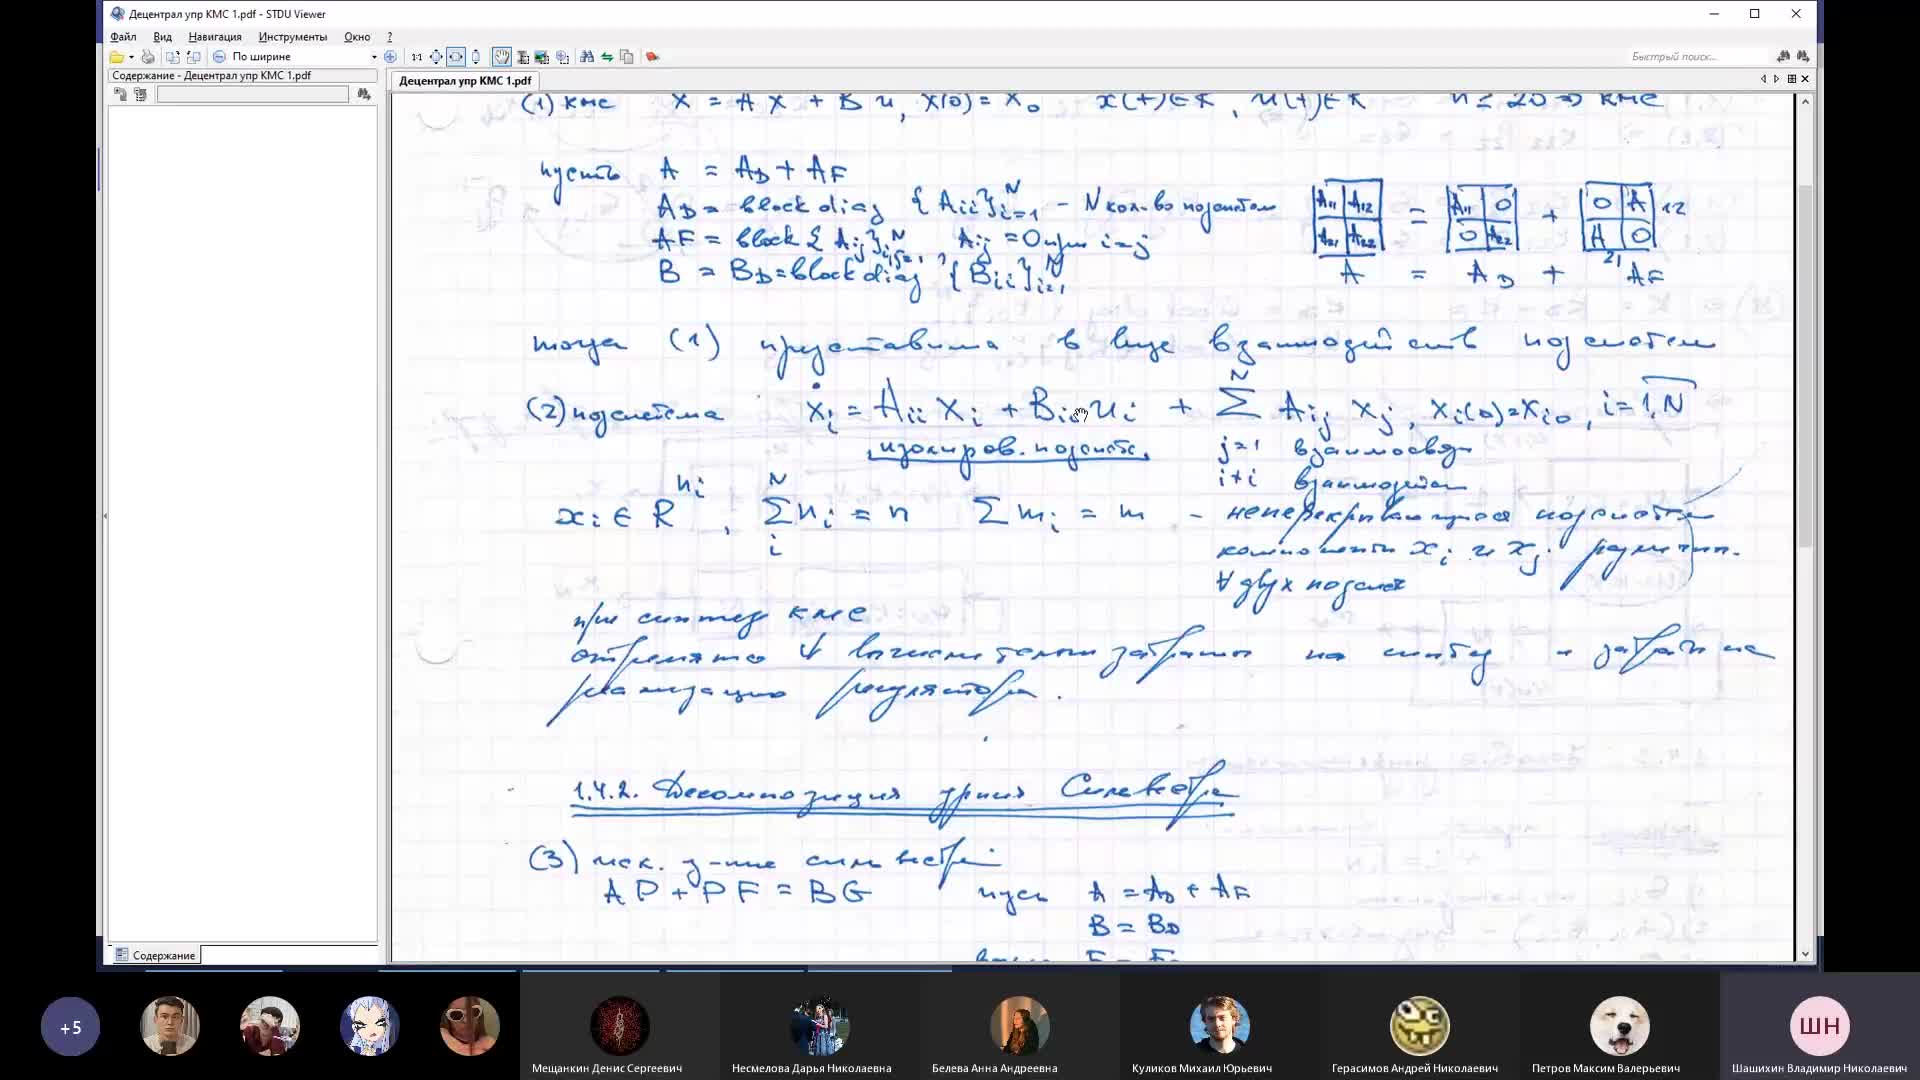 Децентрал упр КМС 1.pdf - STDU Viewer
Файл Вид Навигация Инструменты Окно ?
По ширине
1:1
Быстрый поиск...
Содержание - Децентрал упр КМС 1.pdf
Децентрал упр КМС 1.pdf
(1) КМС Ẋ = A X + B u, X(0) = X₀ x(t)∈R , u(t)∈R n ≤ 20 ⇒ КМС
пусть A = A_D + A_F
A_D = block diag {A_ii}_{i=1}^N - N кол-во подсистем
A_F = block {A_ij}_{i,j=1}^N, A_ij = 0 при i=j
B = B_D = block diag {B_ii}_{i=1}^N
A₁₁ A₁₂ = A₁₁ 0 + 0 A₁₂
A₂₁ A₂₂ 0 A₂₂ A₂₁ 0
A = A_D + A_F
тогда (1) представима в виде взаимодейств подсистем
(2) подсистема ẋ_i = A_ii X_i + B_ii u_i + Σ^N A_ij X_j, X_i(0) = X_i0, i = 1,N
изолиров. подсист. j=1 взаимосвязь
взаимодейст
x_i ∈ R^{n_i}, Σ_i^N n_i = n Σ m_i = m - неперекрывающиеся подсистемы
компоненты x_i и x_j различн.
∀ двух подсист
при синтезе КМС
стремятся ↓ вычислительные затраты на синтез и затраты на
реализацию регулятора.
1.4.2. Декомпозиция ур-ния Сильвестра
(3) исх. у-ние Сильвестра
A P + P F = B G пусть A = A_D + A_F
B = B_D
Содержание
+5
Мещанкин Денис Сергеевич
Несмелова Дарья Николаевна
Белева Анна Андреевна
Куликов Михаил Юрьевич
Герасимов Андрей Николаевич
Петров Максим Валерьевич
ШН
Шашихин Владимир Николаевич